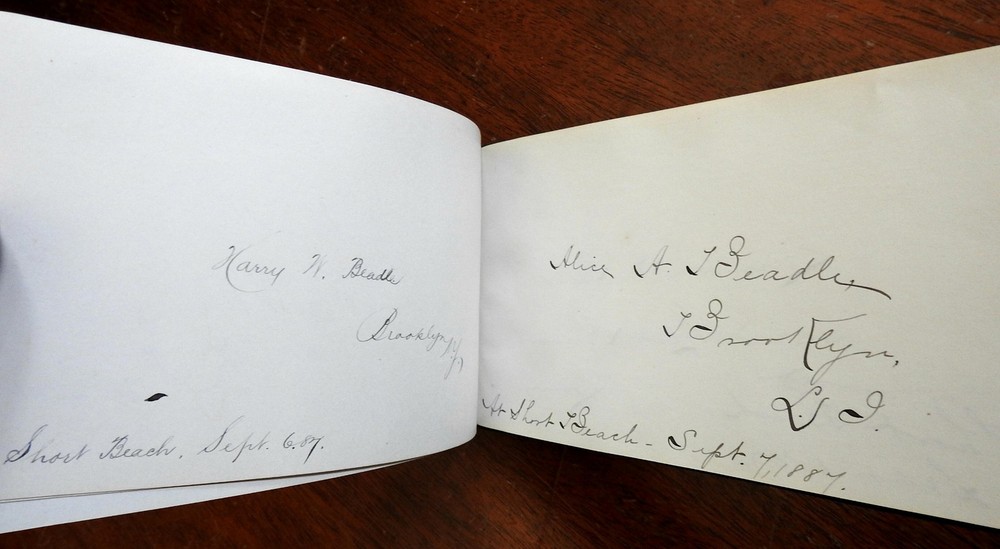 Harry W. Beadle
Brooklyn, N.Y.
Short Beach, Sept. 6. 87.
Alice A. Beadle,
Brooklyn,
L. I.
At Short Beach - Sept. 7, 1887.